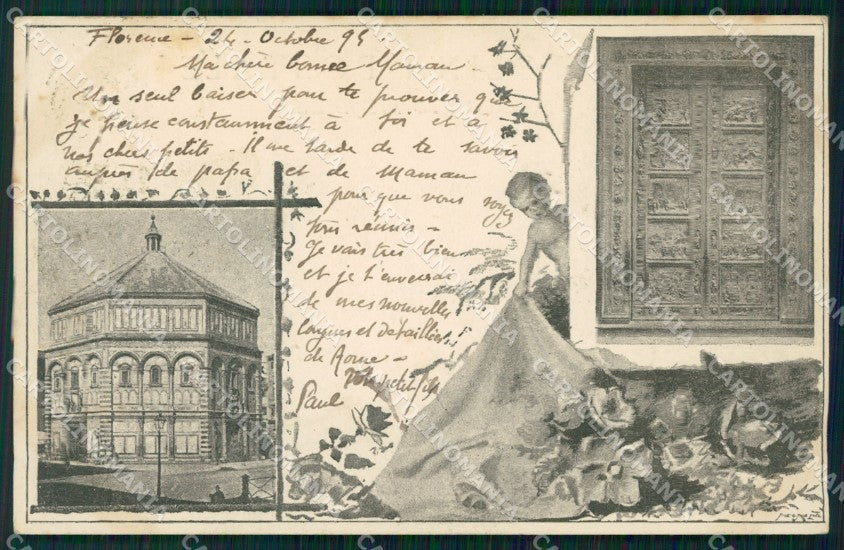 Florence - 24 - Octobre 95
Ma chère bonne Maman -
Un seul baiser pour te prouver que
je pense constamment à toi et à
nos chers petits - Il me tarde de te savoir
auprès de papa et de Maman
pour que vous soyez
tous réunis -
Je vais très bien
et je t'enverrai
de mes nouvelles
longues et détaillées
de Rome -
Ton petit fils
Paul
CARTOLINOMANIA